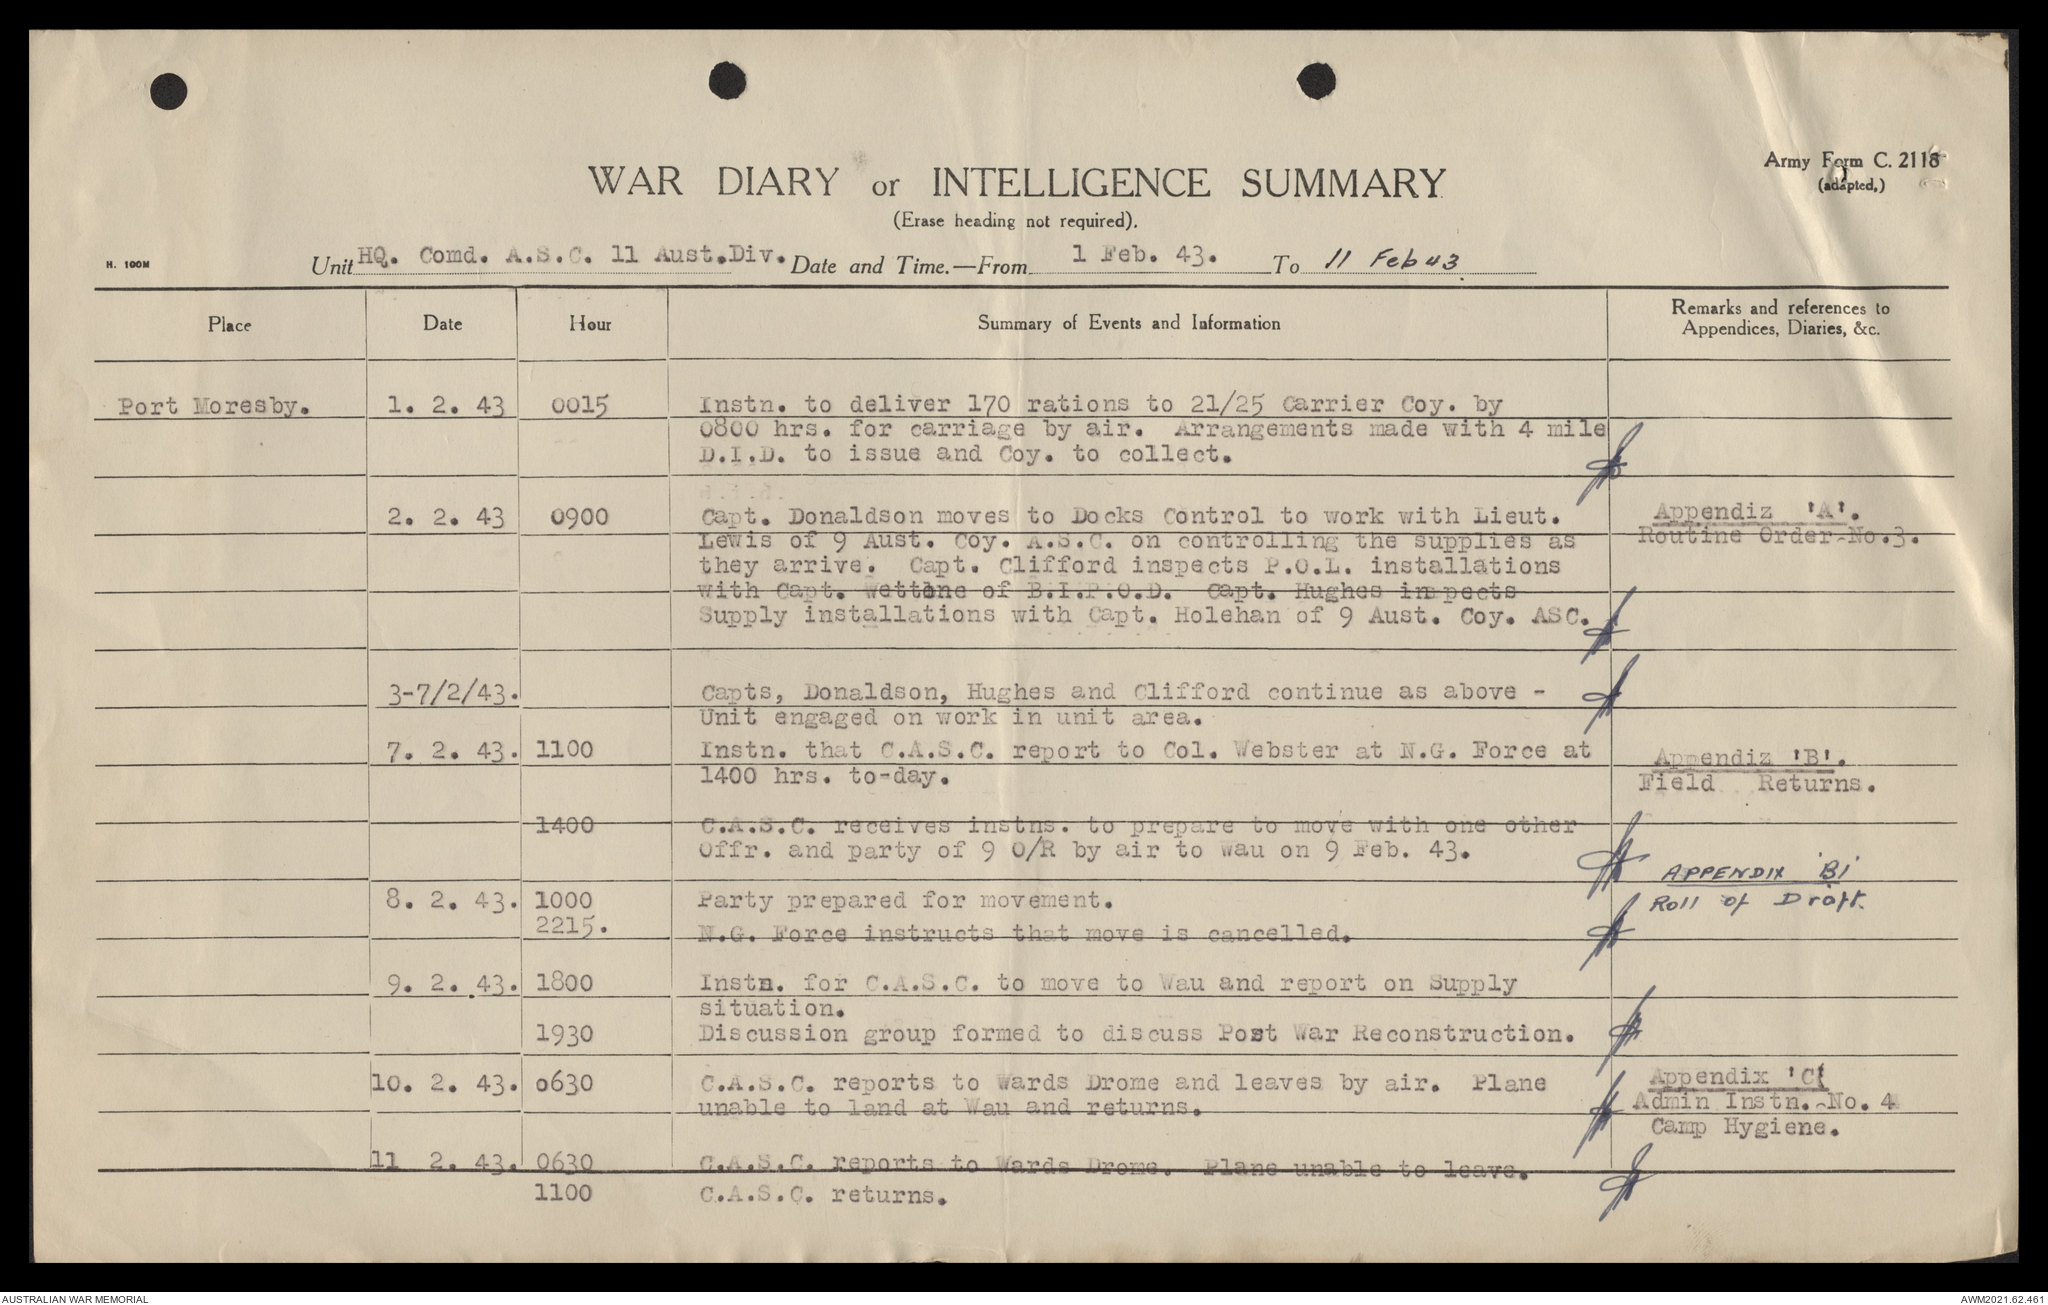 Army Form C. 2118
(adapted,)
WAR DIARY or INTELLIGENCE SUMMARY
(Erase heading not required).
H. 100M
Unit HQ. Comd. A.S.C. 11 Aust.Div. Date and Time.—From 1 Feb. 43. To 11 Feb 43.
Place Date Hour Summary of Events and Information Remarks and references to
Appendices, Diaries, &c.
Port Moresby. 1. 2. 43 0015 Instn. to deliver 170 rations to 21/25 Carrier Coy. by
0800 hrs. for carriage by air. Arrangements made with 4 mile
D.I.D. to issue and Coy. to collect.
2. 2. 43 0900 Capt. Donaldson moves to Docks Control to work with Lieut. Appendiz 'A'.
Lewis of 9 Aust. Coy. A.S.C. on controlling the supplies as Routine Order No.3.
they arrive. Capt. Clifford inspects P.O.L. installations
with Capt. Wettone of B.I.P.O.D. Capt. Hughes inspects
Supply installations with Capt. Holehan of 9 Aust. Coy. ASC.
3-7/2/43. Capts, Donaldson, Hughes and Clifford continue as above -
Unit engaged on work in unit area.
7. 2. 43. 1100 Instn. that C.A.S.C. report to Col. Webster at N.G. Force at Appendiz 'B'.
1400 hrs. to-day. Field Returns.
1400 C.A.S.C. receives instns. to prepare to move with one other
Offr. and party of 9 O/R by air to Wau on 9 Feb. 43.
APPENDIX 'B1'
8. 2. 43. 1000 Party prepared for movement. Roll of Draft.
2215. N.G. Force instructs that move is cancelled.
9. 2. 43. 1800 Instn. for C.A.S.C. to move to Wau and report on Supply
situation.
1930 Discussion group formed to discuss Post War Reconstruction.
10. 2. 43. 0630 C.A.S.C. reports to Wards Drome and leaves by air. Plane Appendix 'C'
unable to land at Wau and returns. Admin Instn. No. 4
Camp Hygiene.
11 2. 43. 0630 C.A.S.C. reports to Wards Drome. Plane unable to leave.
1100 C.A.S.C. returns.
AUSTRALIAN WAR MEMORIAL AWM2021.62.461